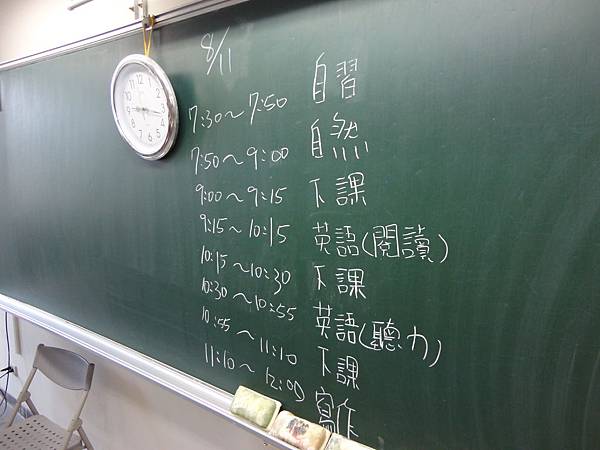 8/11
7:30～7:50 自習
7:50～9:00 自然
9:00～9:15 下課
9:15～10:15 英語(閱讀)
10:15～10:30 下課
10:30～10:55 英語(聽力)
10:55～11:10 下課
11:10～12:00 寫作